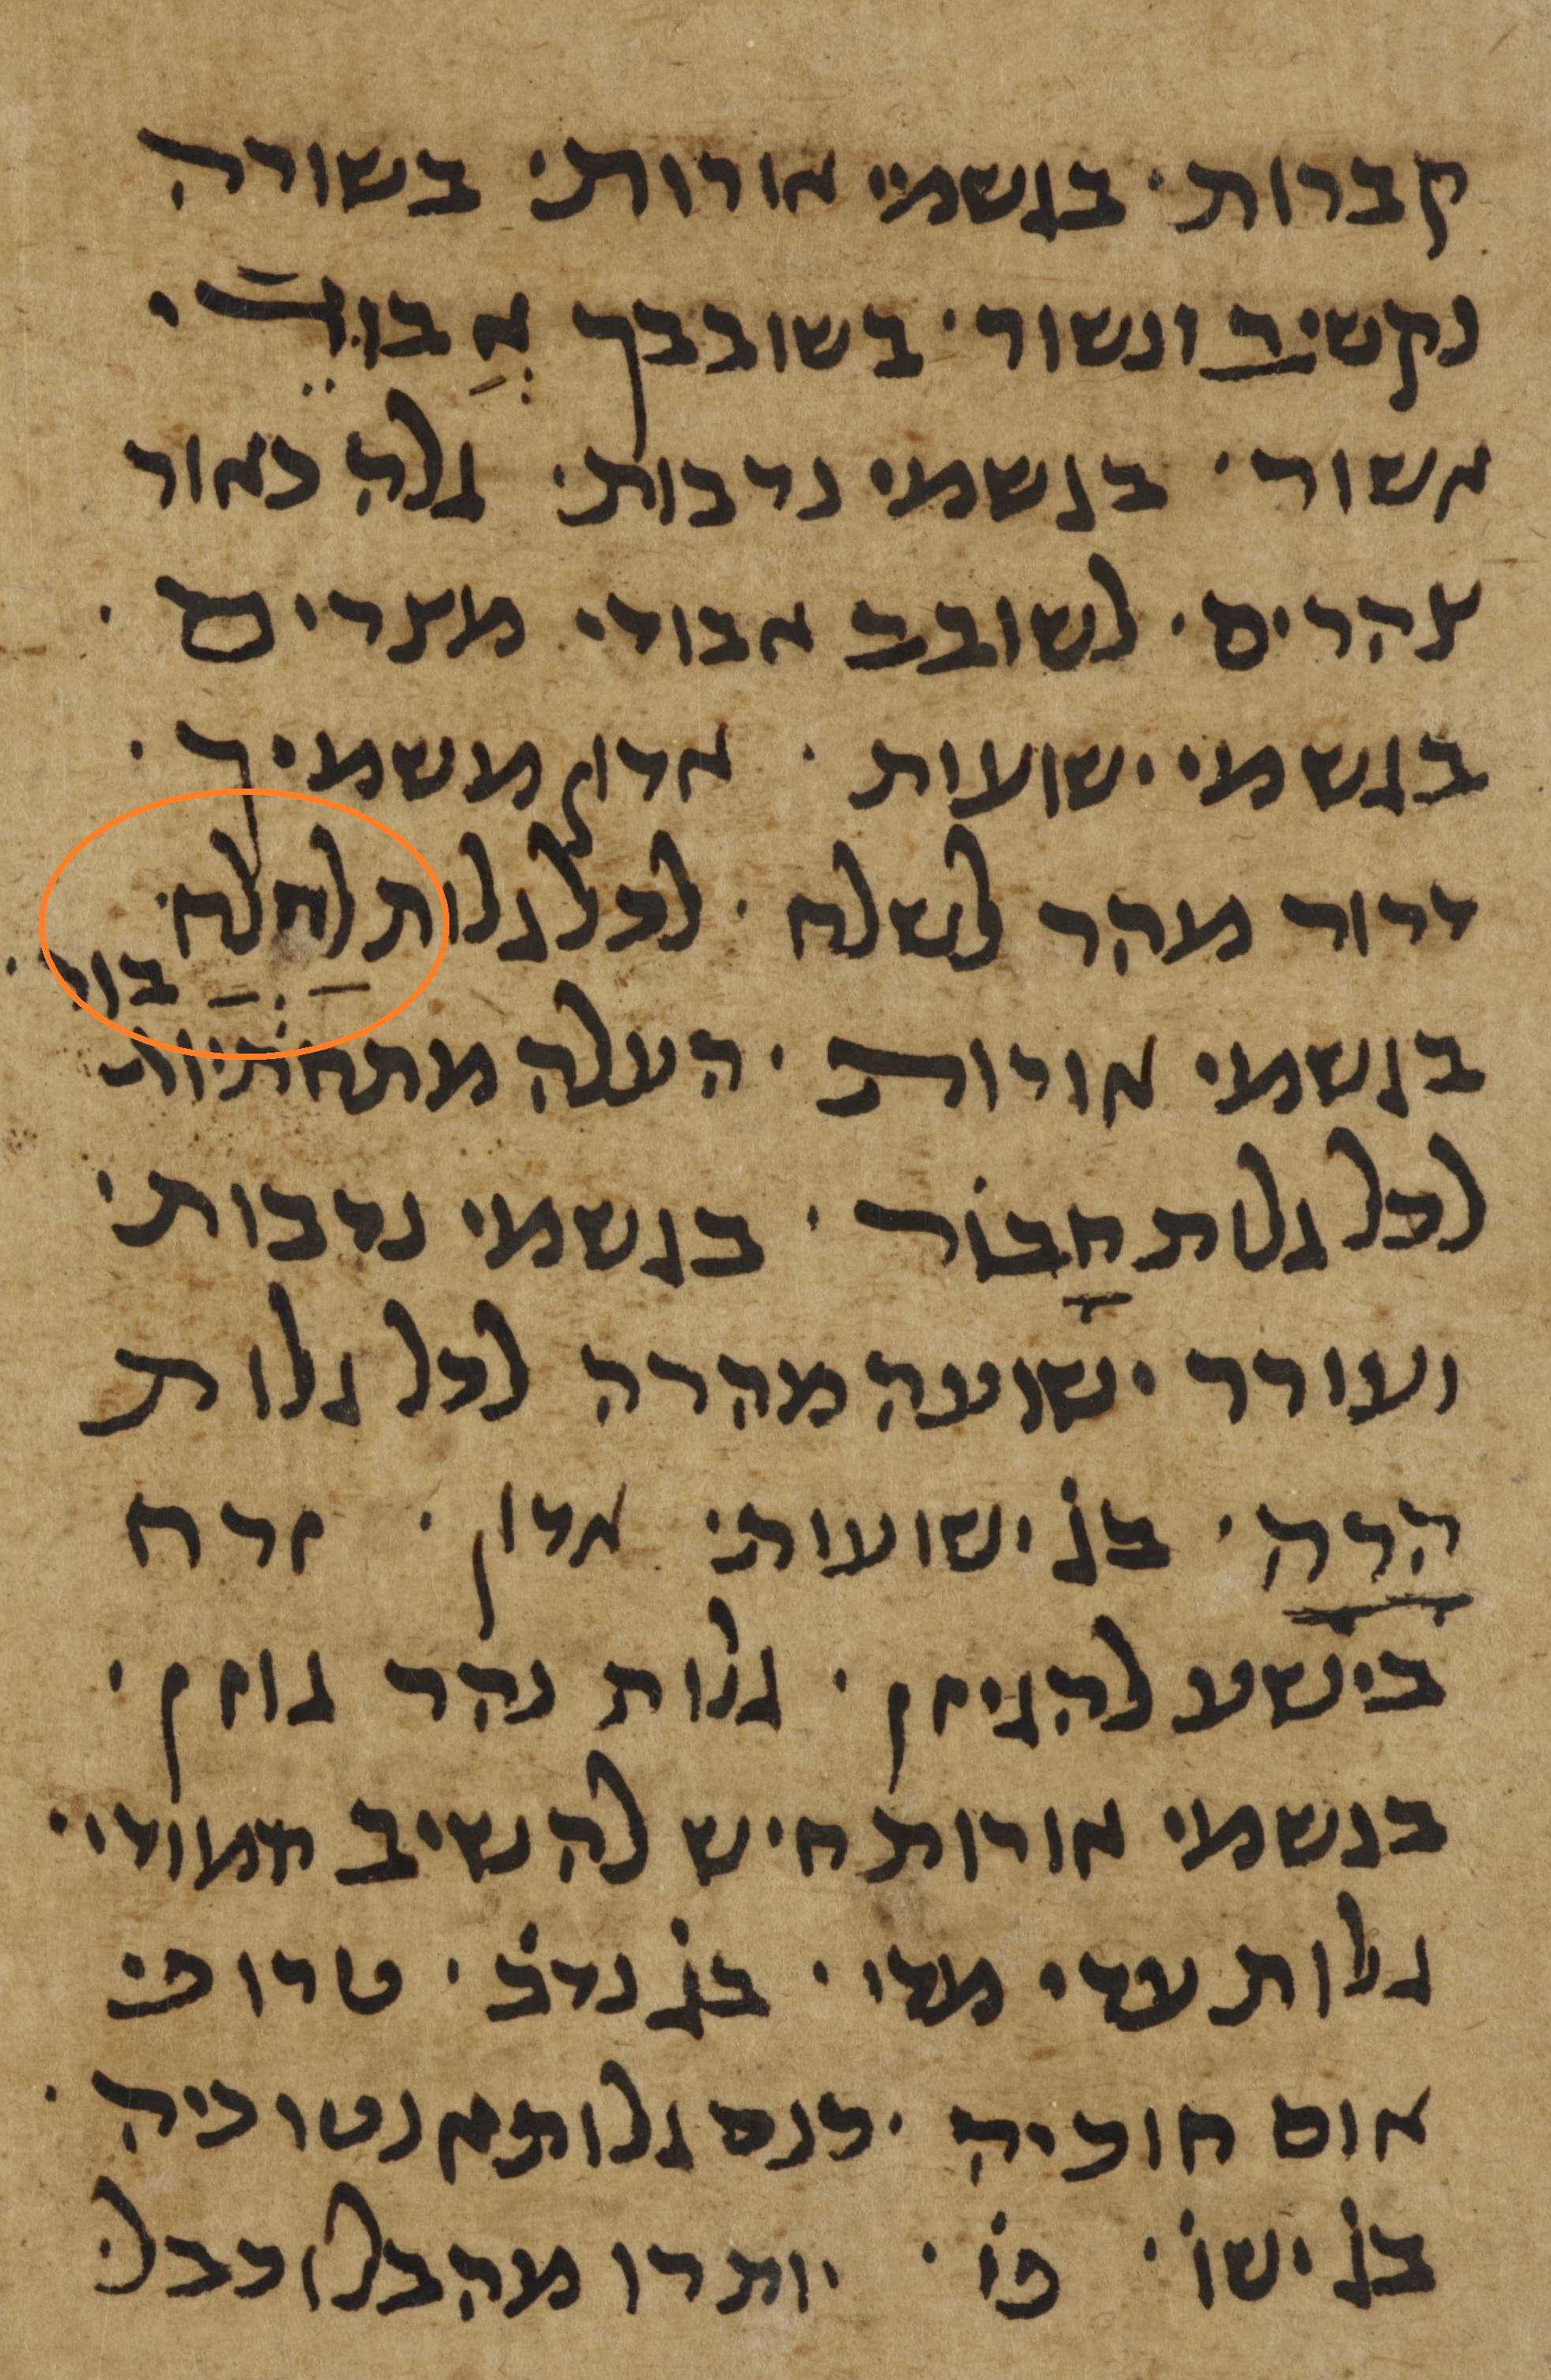 קברות· בגשמי אורות· בשורה
נקשיב ונשור· בשובבך אֲבוּדֵי·
אשור· בגשמי נדבות· גלה כאור
צהרים· לשובב אבודי מצרים·
בגשמי ישועות · אדון משמיך·
דרור מהר לשלח · לכל גלות לַחְלַח·
בור·
בגשמי אורות · העלה מתחתיות
לכל גלות חָבור · בגשמי נדבות·
ועורר ישועה מהרה לכל גלות
הרה· בג ישועות· אדון · זרח
בישע להגיזן · גלות נהר גוזן ·
בגשמי אורות חיש להשיב חמודיי·
גלות ערי מדי · בג נדב · טרופי
אום חוכיה · כנס גלות אנטוכיה ·
בג ישו · פו · יותרו מהבלו כבלי